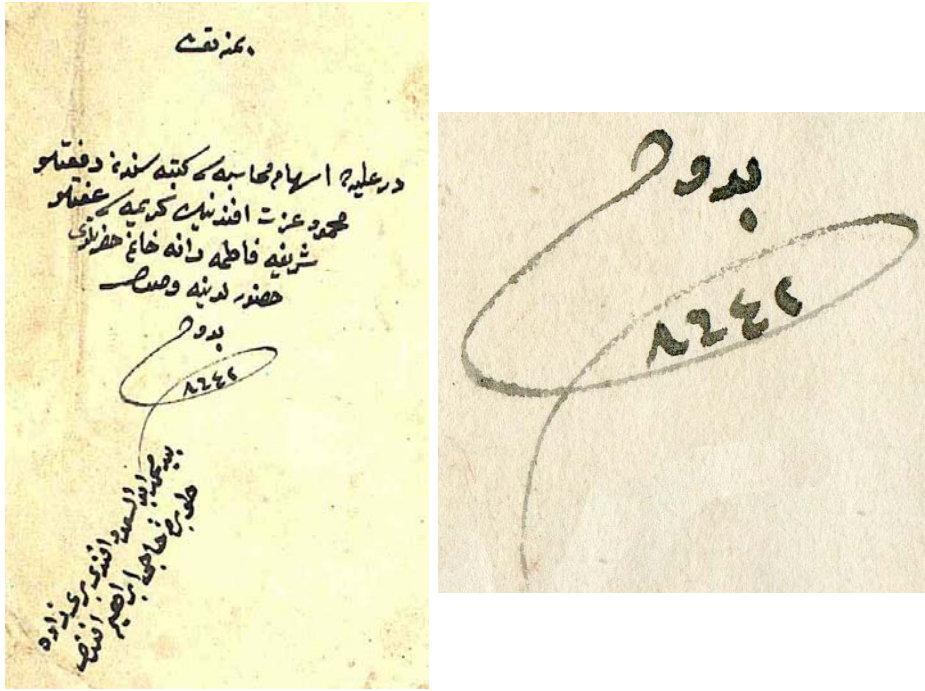 بمنه تعالى
در عليه اسهام محاسبه سى كتبه سندن رفعتلو
محمود عزت افندينك كريمه سى عفتلو
شريفه فاطمه دانه خانم حضرتلرى
حضور لرينه وصوله
بدوح
٨٦٤٢
افندى برى زاده
حاجى ابراهيم افندى
بدوح
٨٦٤٢